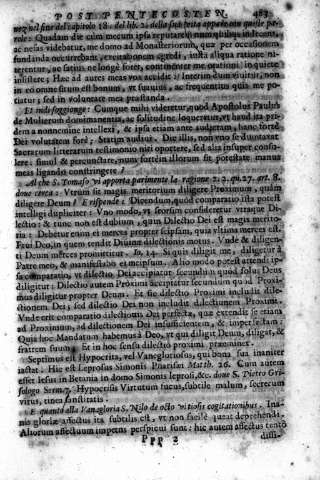 POST PENTECOSTEN. 483
nez nel fine del capitolo 18. del lib. 2. della sudetta
: Quadam die cum mecum ipsa reputarem
ac nefas videbatur, me domo ad Monasteriorum, qua per occasionem
fundanda occurrebant, excreationem egredi, iusta aliqua ratione ni
terentur, ac satius ne longè foret, continenter me orationi in quiete
insistere; Hæc ad aures meas vox accidit: Interim cum viuitur, non
in eo omne situm est bonum, vt fuauius, ac frequentius quis me po
tiatur; sed in voluntate mea præstanda.
Et indi soggionge: Cumque mihi videretur, quod Apostolus Paulus
de Mulierum domimanentia, ac solitudine loqueretur, vt haud ita pri
dem à nonnemine intellexi, & ipsa etiam ante audieram, hanc fortè
Dei voluntatem fore; Statim audiui. Dic illis, non vno se duntaxat
Sacrarum litterarum testimonio niti oportere, sed alia insuper conso-
lere; simul & percunctare, num fortein illorum sit potestate manus
meas ligando constringere?
Al che S. Tomaso vi apporta parimente la ragione 2. 2. qu. 27. art. 8.
done cerca: Vtrum sit magis meritorium diligere Proximum, quàm
diligere Deum? E risponde: Dicendum, quod comparatio ista potest
intelligi dupliciter: Vno modo, vt seorsum consideretur vtraque Di-
lectio; & tunc non est dubium, quin Dilectio Dei est magis merito-
ria: Debetur enim ei merces propter seipsam, quia vltima merces est.
Frui Deo, in quem tendit Diuinæ dilectionis motus. Vnde & diligen-
ti Deum merces promittitur. Io. 14. Si quis diligit me, diligetur à
Patre meo, & manifestabo ei meipsum. Alio modo potest attendi ip-
sa comparatio, vt dilectio Dei accipiatur secundum quod solus Deus
diligitur: Dilectio autem Proximi accipiatur secundum quod Proxi-
mus diligitur propter Deum. Et sic dilectio Proximi includit dile-
ctionem Dei; sed dilectio Dei non includit dilectionem Proximi.
Vnde erit comparatio dilectionis Dei perfectæ, quæ extendit se etiam
ad Proximum, ad dilectionem Dei insufficientem, & imperfectam:
Quia hoc Mandatum habemus à Deo, vt qui diligit Deum, diligat, &
fratrem suum. Et in hoc sensu dilectio proximi præeminet.
Septimus est Hypocrita, vel Vanegloriosus, qui bona sua inaniter
iactat: Hic est Leprosus Simonis Pharisæi Matth. 26. Cum autem
esset Iesus in Betania in domo Simonis leprosi, &c. done S. Pietro Gri-
sologo Serm. 7. Hypocrisis Virtutum fucus, subtile malum, secretum
virus, tinea sanctitatis.
E quanto alla Vanagloria S. Nilo de octo vitiosis cogitationibus. Ina-
nis gloriæ affectus ita subtilis est, vt non facilè queat deprehendi.
Aliorum affectuum impetus perspicui sunt: hic autem affectus tento
Ppp 2
dissi-